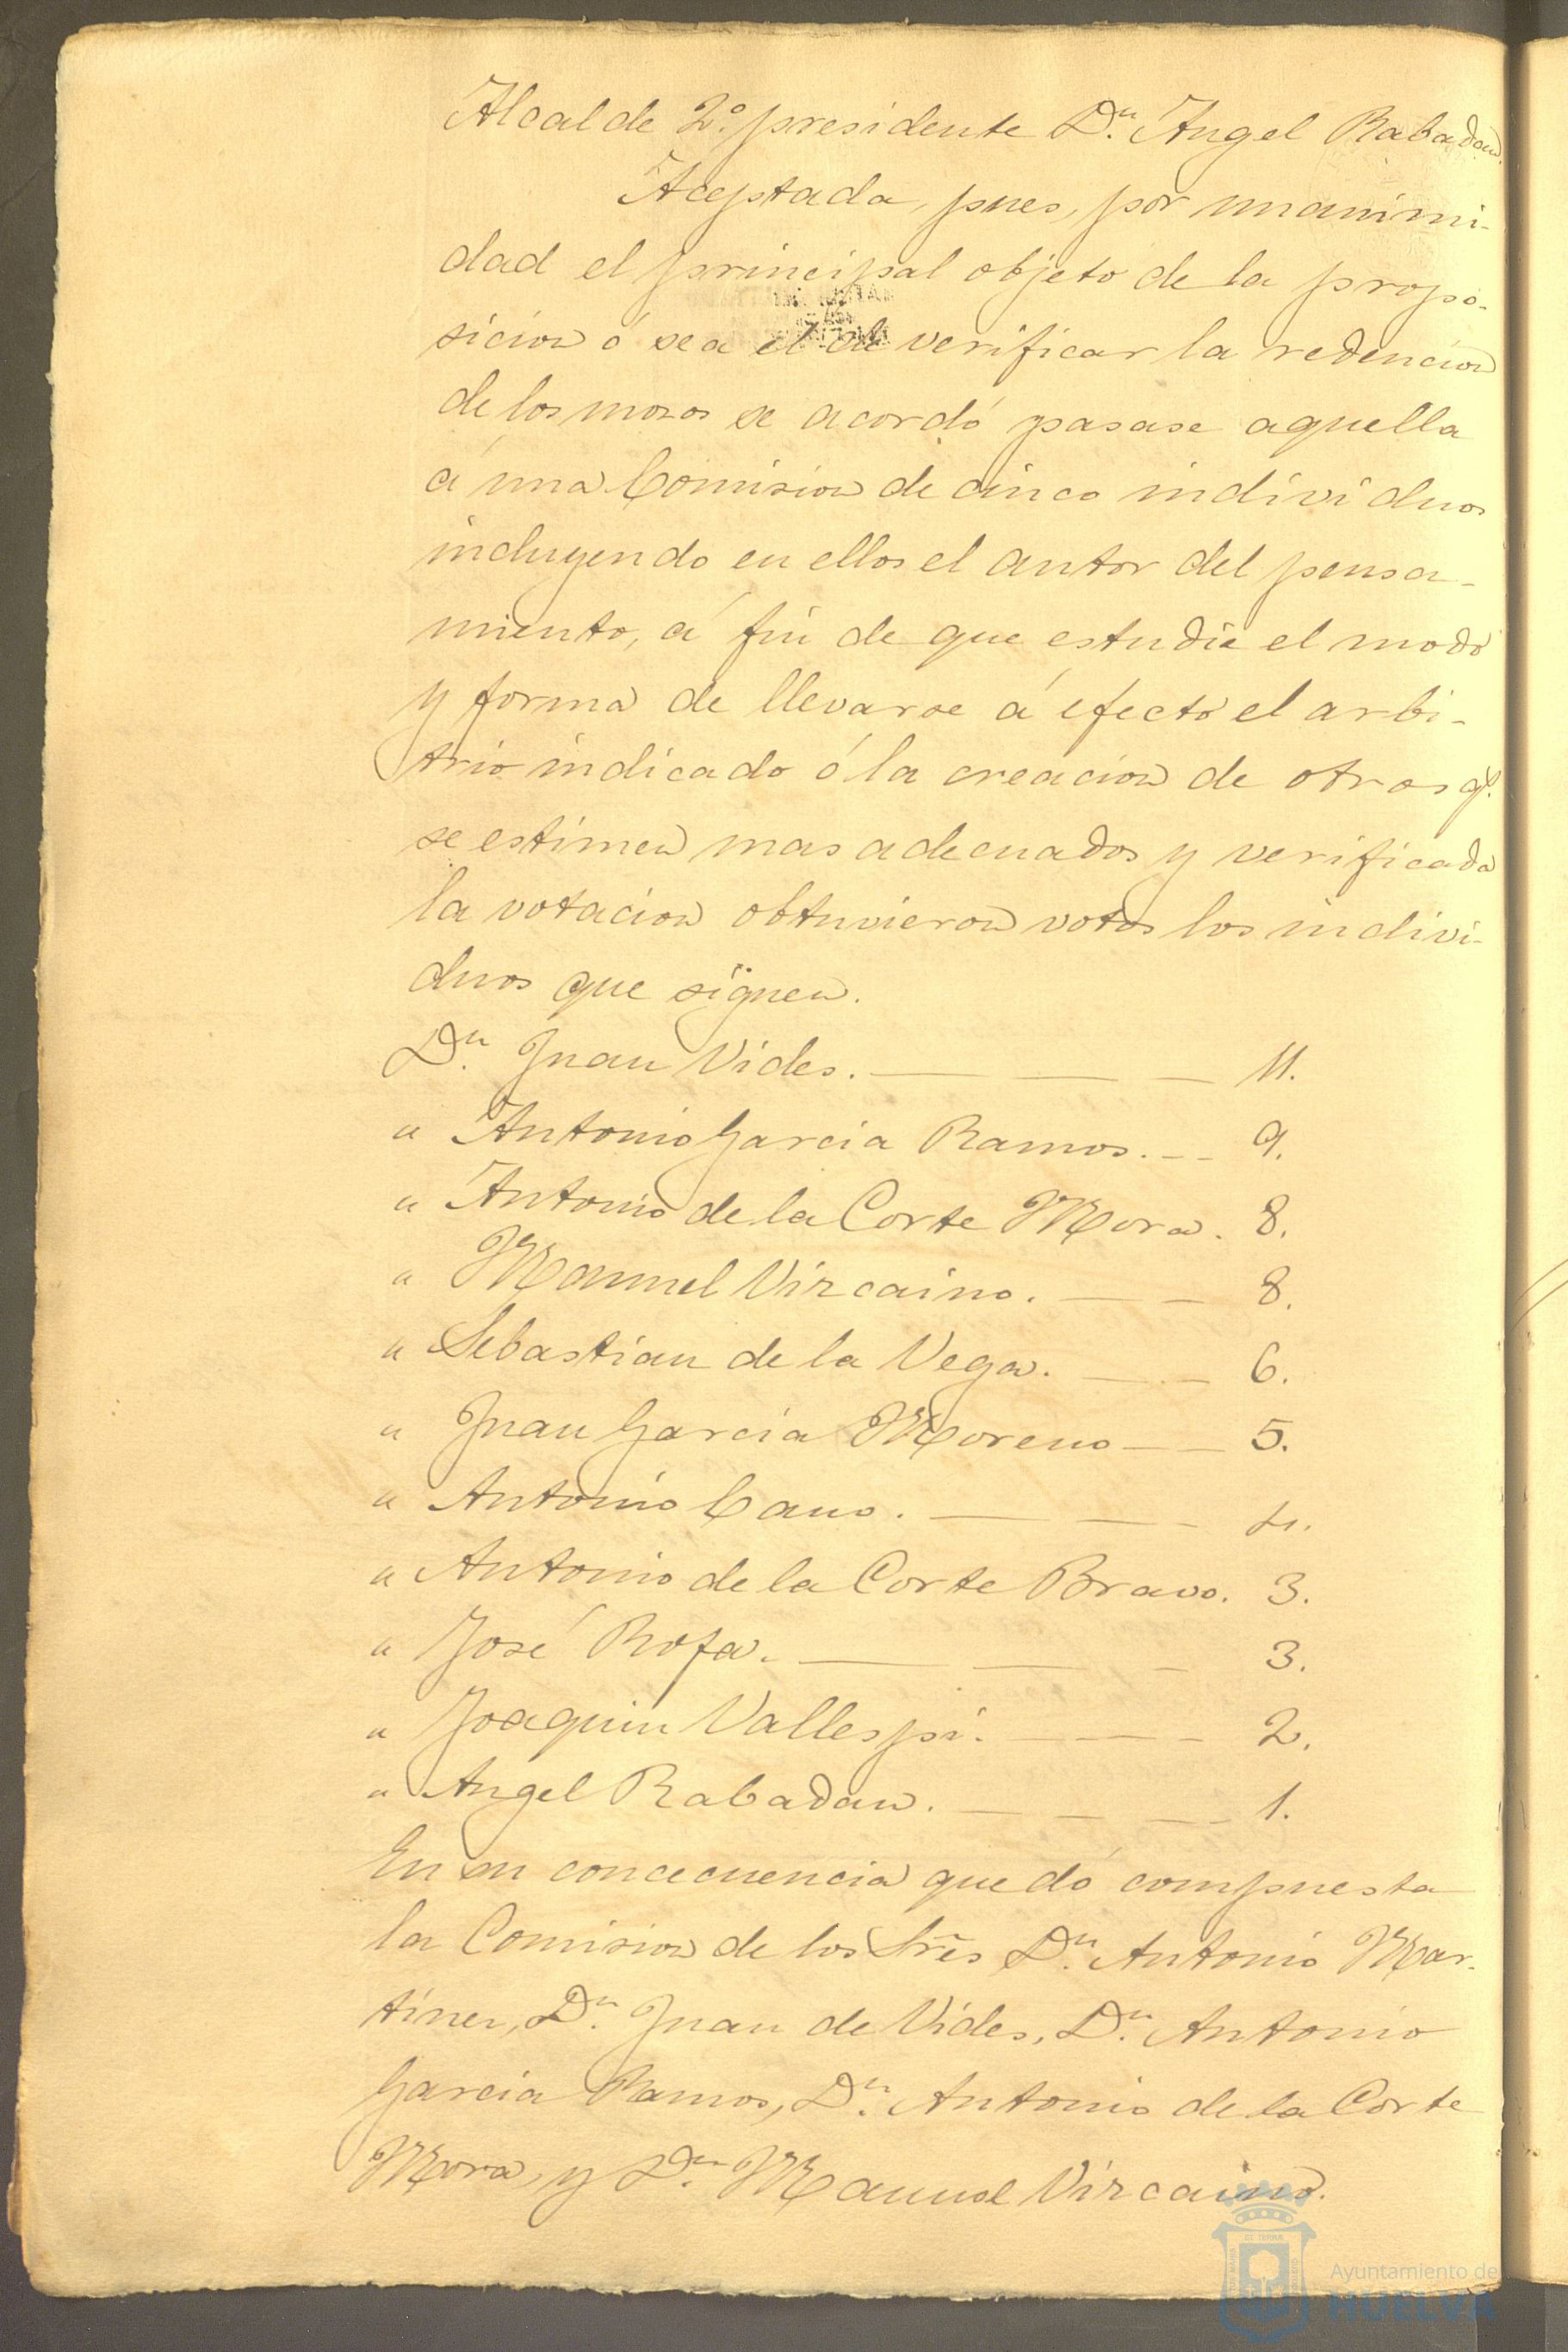 Alcalde 2º presidente Dⁿ. Angel Rabadan.
Aceptada, pues, por unanimi-
dad el principal objeto de la propo-
sicion ó sea el de verificar la redencion
de los mozos se acordó pasase aquella
á una Comision de cinco individuos
incluyendo en ellos el autor del pensa-
miento, á fin de que estudie el modo
y forma de llevarse á efecto el arbi-
trio indicado ó la creacion de otros qᵉ.
se estimen mas adecuados y verificada
la votacion obtuvieron votos los indivi-
duos que siguen.
Dⁿ. Juan Vides. — — — 11.
" Antonio Garcia Ramos. — — 9.
" Antonio de la Corte Mora. 8.
" Manuel Vizcaino. — — 8.
" Sebastian de la Vega. — — 6.
" Juan Garcia Moreno — — 5.
" Antonio Cano. — — — 4.
" Antonio de la Corte Bravo. 3.
" José Rofa. — — — 3.
" Joaquin Vallespi. — — — 2.
" Angel Rabadan. — — — — 1.
En su concecuencia quedó compuesta
la Comision de los Srẽs Dⁿ. Antonio Mar-
tinez, Dⁿ. Juan de Vides, Dⁿ. Antonio
Garcia Ramos, Dⁿ. Antonio de la Corte
Mora, y Dⁿ Manuel Vizcaino.
Ayuntamiento de
HUELVA